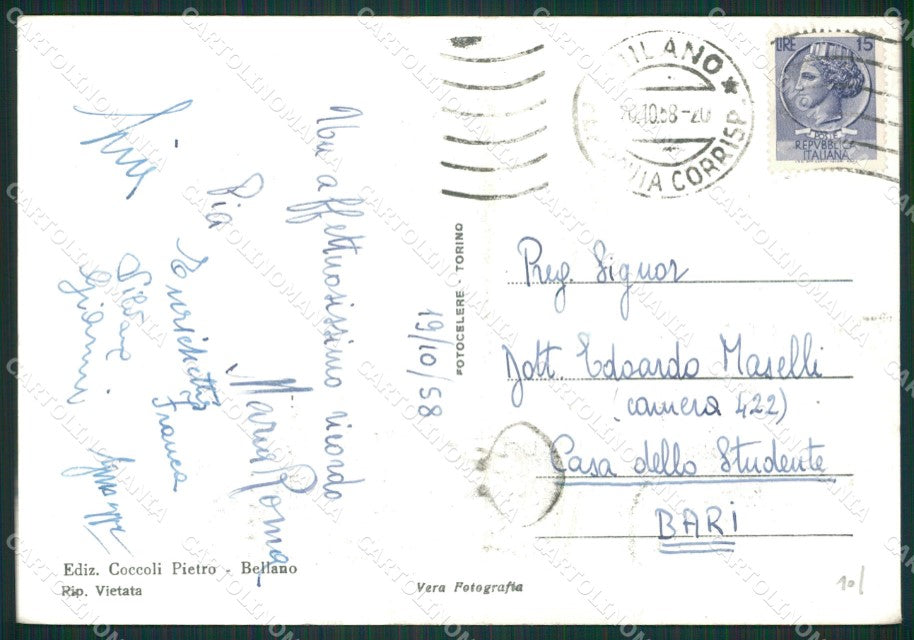 19/10/58
Un affettuosissimo ricordo
Maria Roma
Pia
Enrichetta
Franca
Silvana
Gianni
Giuseppe
Ediz. Coccoli Pietro - Bellano
Rip. Vietata
FOTOCELERE - TORINO
Vera Fotografia
MILANO
.10.58-20
CORRISP
LIRE 15
POSTE
REPVBBLICA
ITALIANA
Preg. Signor
Dott. Edoardo Maselli
(camera 422)
Casa dello Studente
BARI
10/
CARTOLINOMANIA